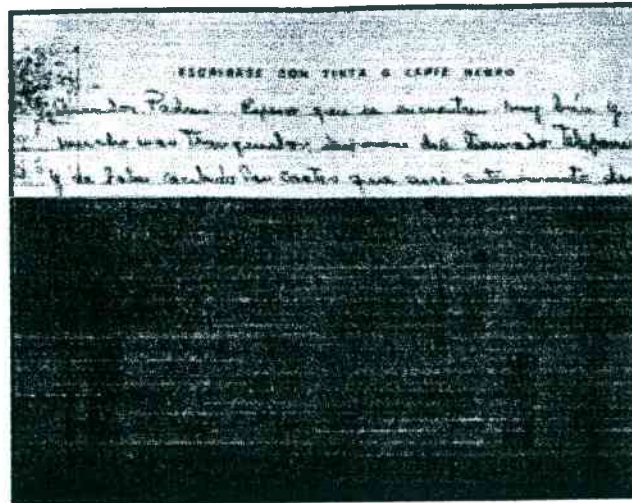 ESCRIBASE CON TINTA O LAPIZ NEGRO
Queridos Padres Espero que se encuentren muy bien y
mucho mas tranquilos despues del llamado telefon
y de haber recibido las cartas que